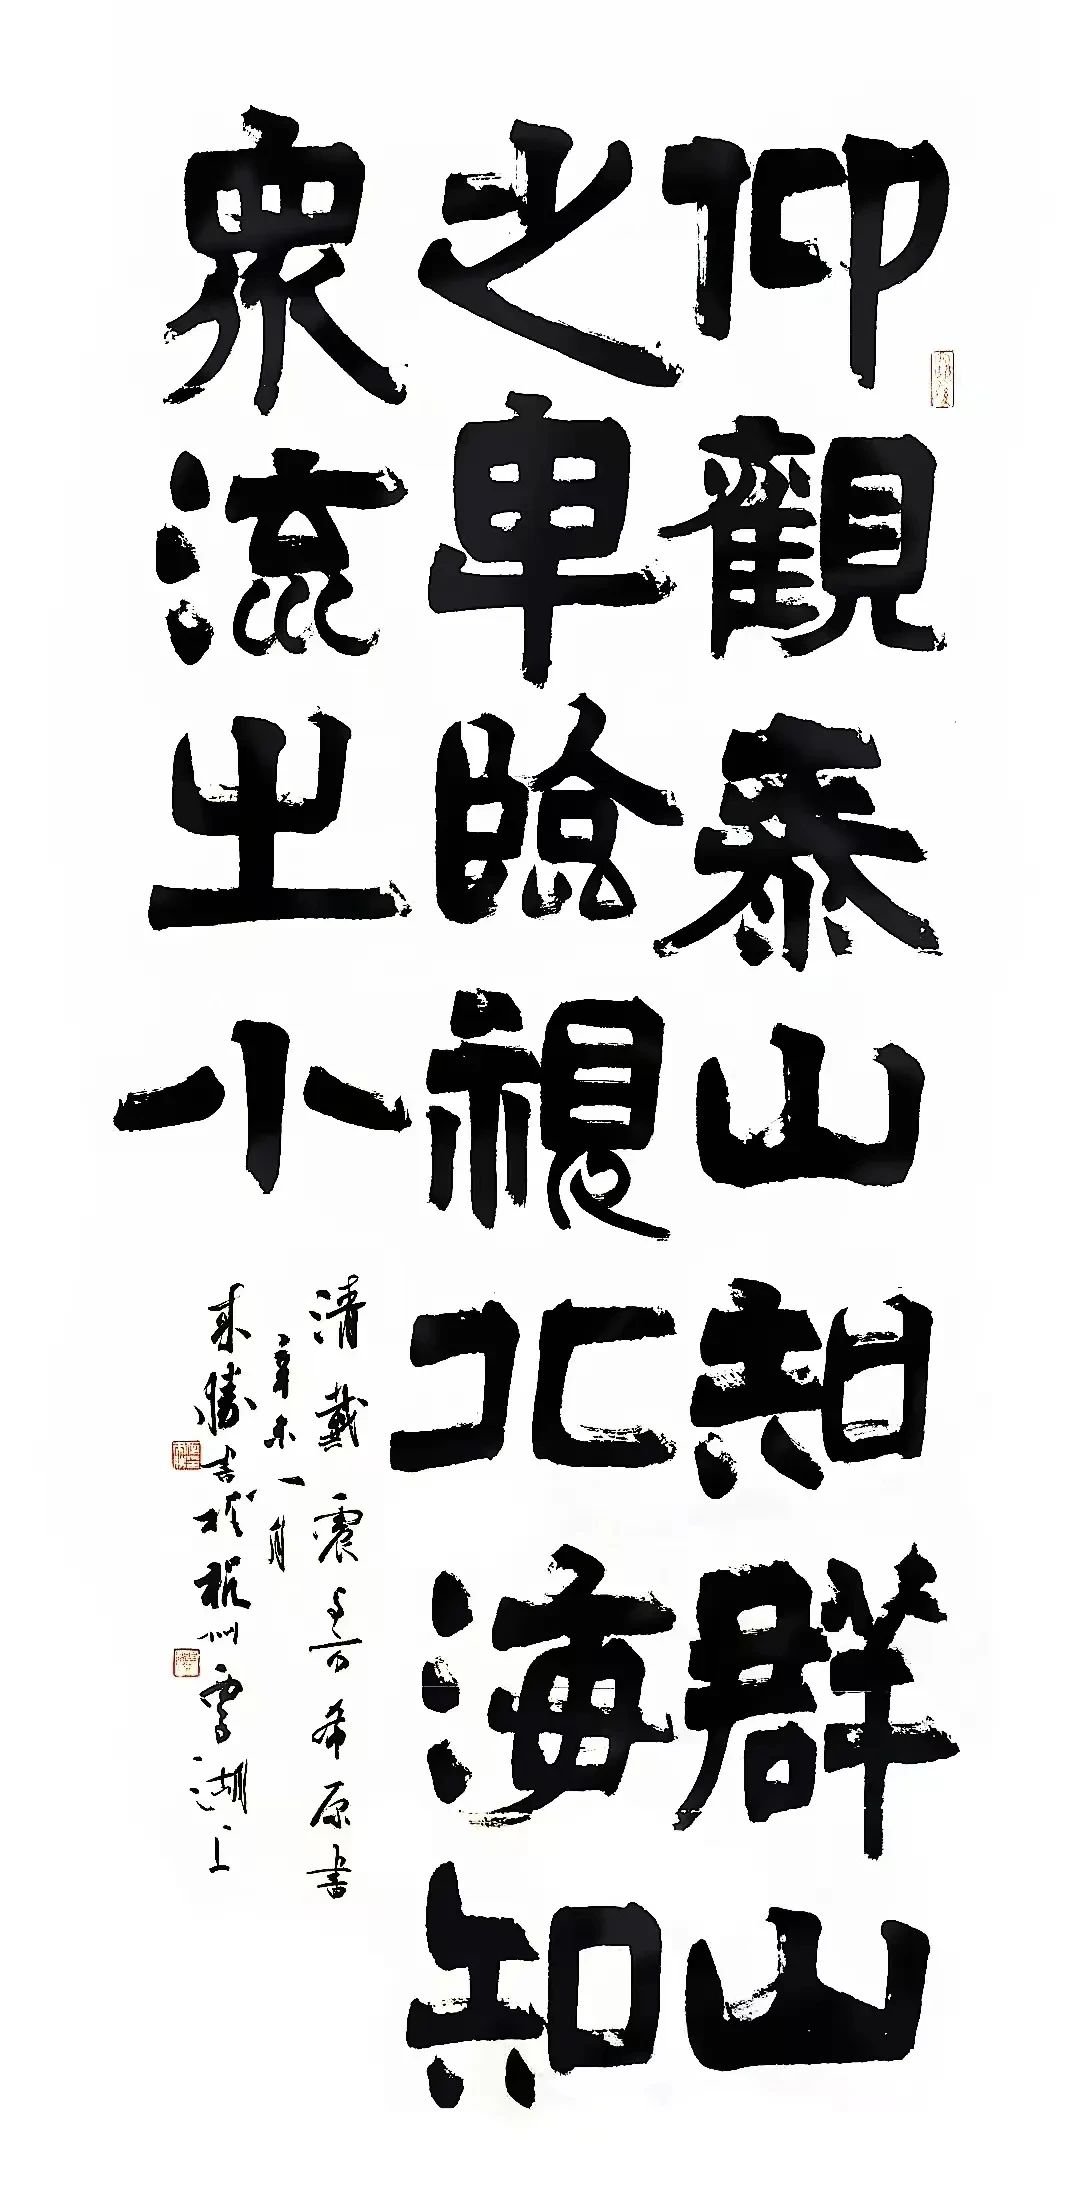 仰觀泰山知群山
之卑臨視北海知
衆流之小
清戴震与方希原書
辛未一月
於杭州 湖上